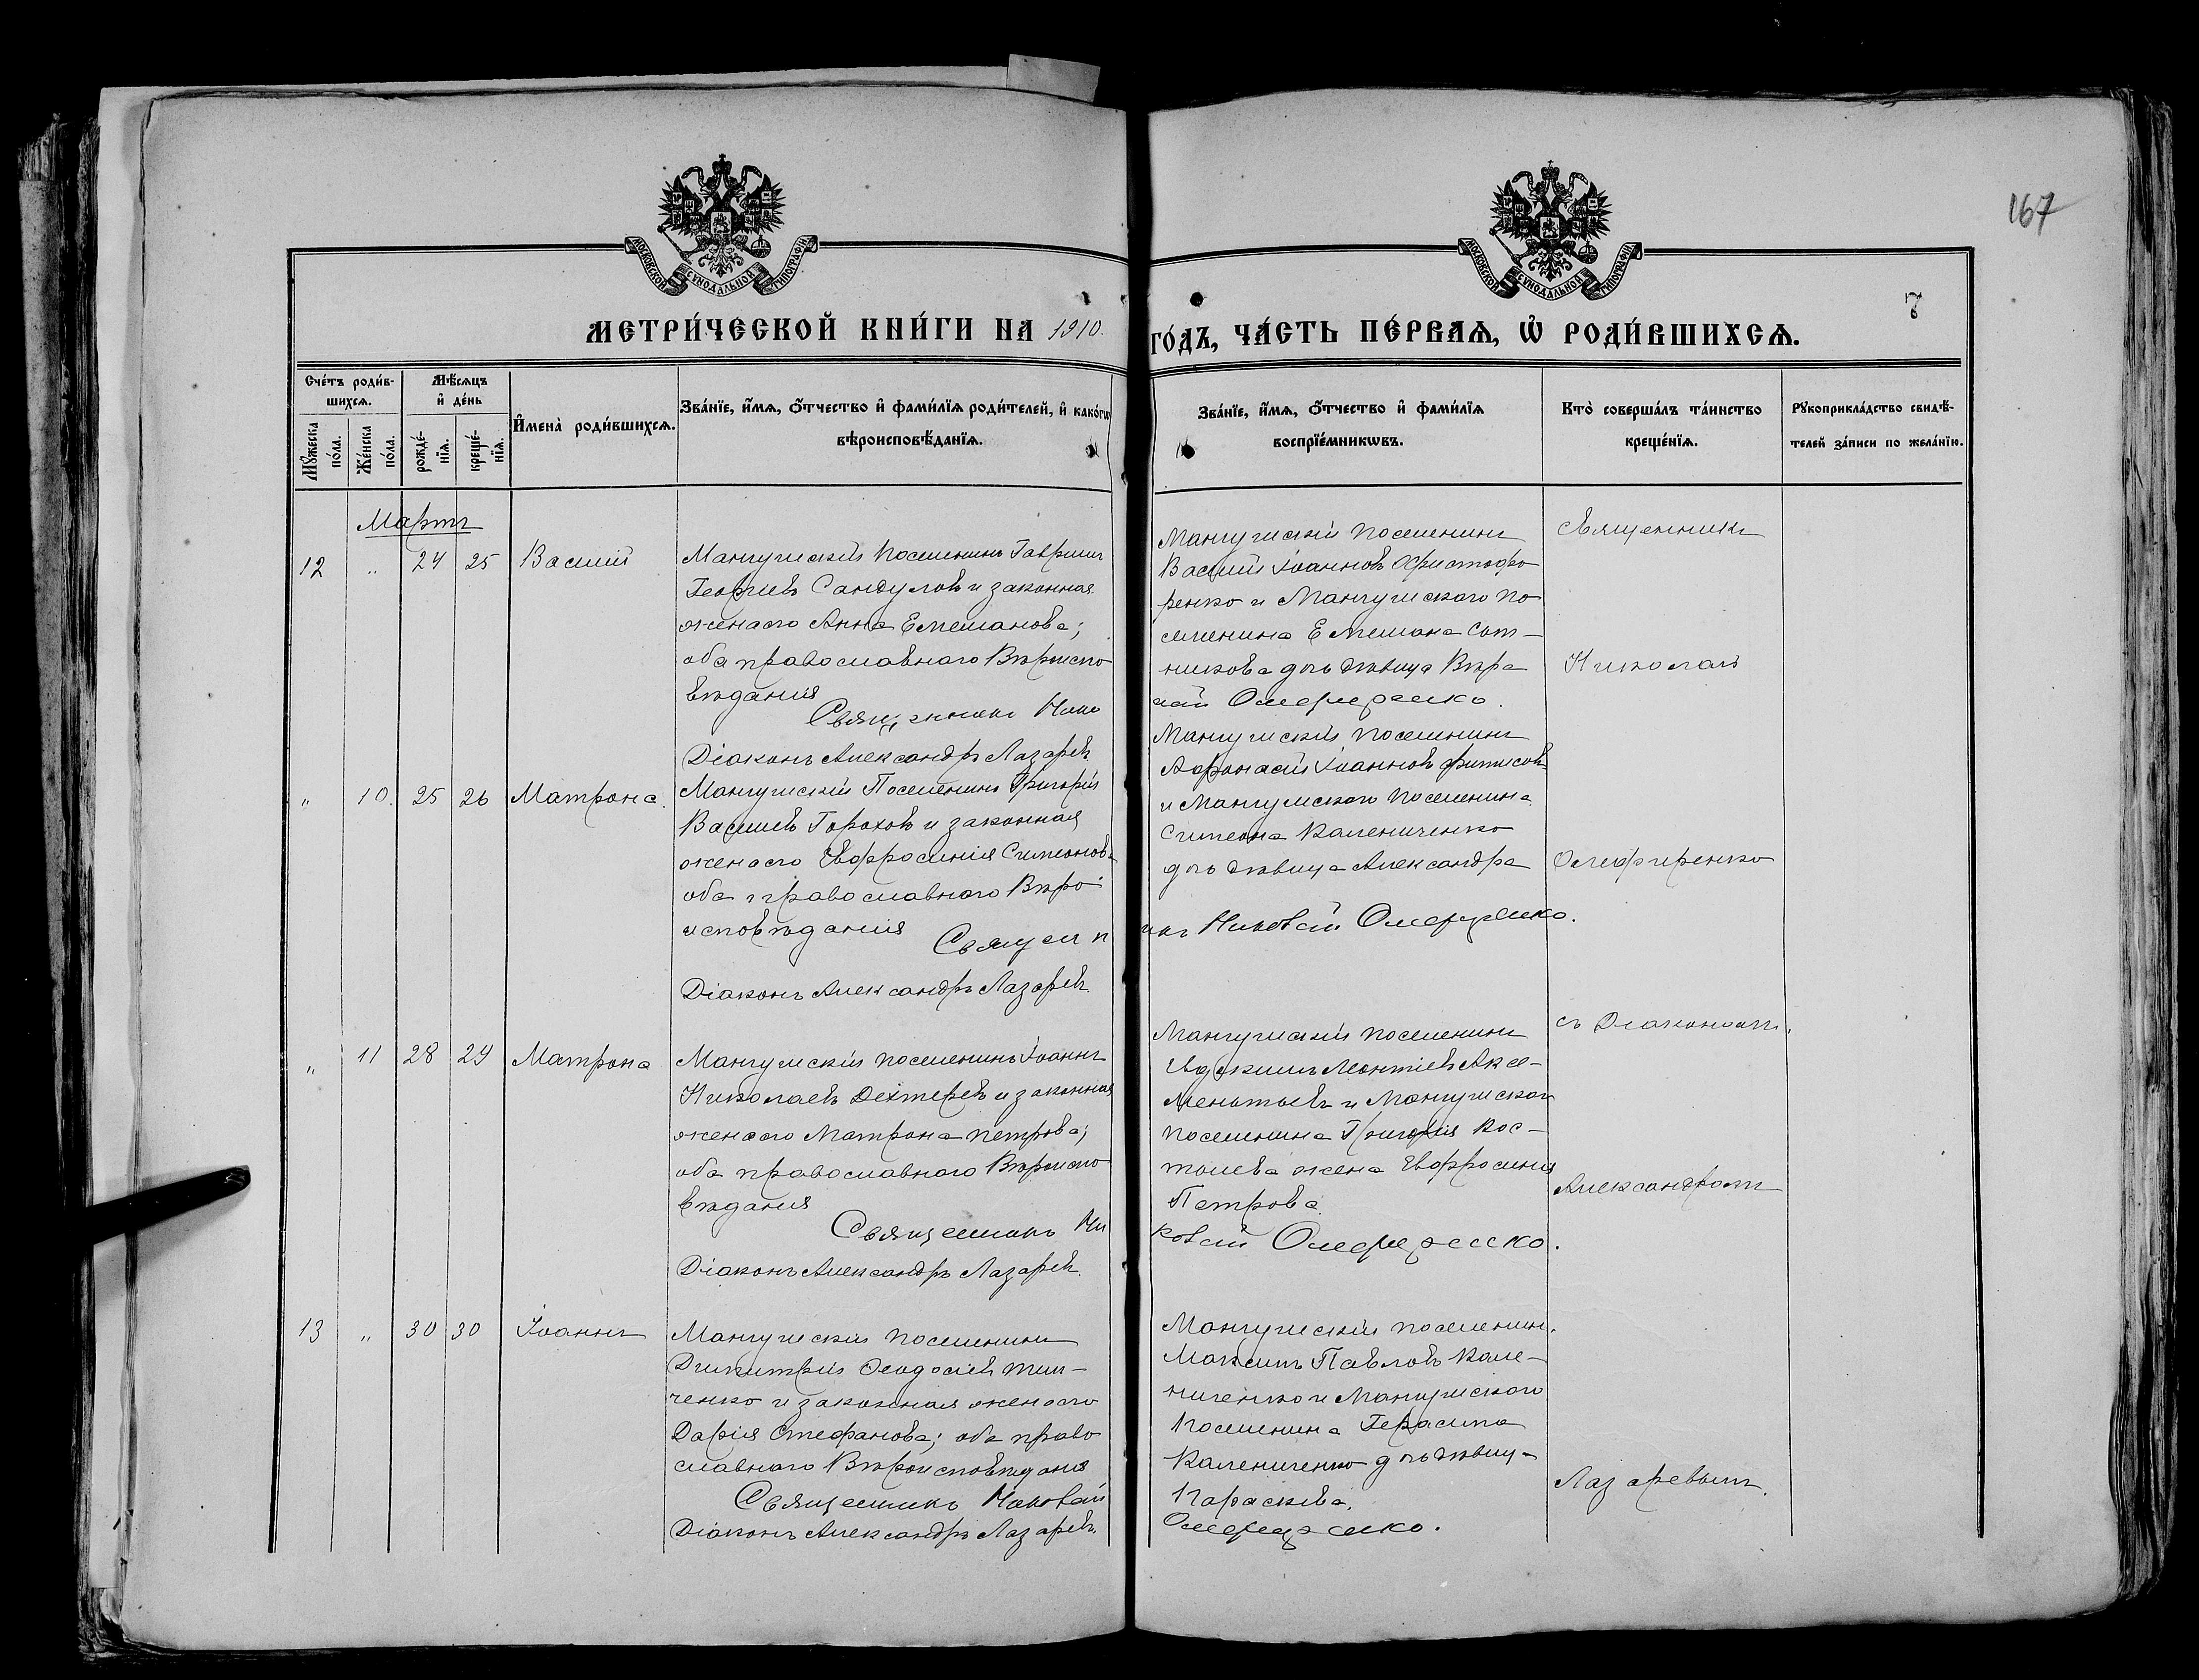 167
МОСКОВСКОЙ СУНОДАЛЬНОЙ ТИПОГРАФІИ
МОСКОВСКОЙ СУНОДАЛЬНОЙ ТИПОГРАФІИ
7
МЕТРИ́ЧЕСКОЙ КНИ́ГИ НА 1910.
ГО́ДЪ, ЧА́СТЬ ПЕ́РВАѦ, Ѡ РОДИ́ВШИХСѦ.
Сче́тъ роди́в-
шихсѧ.
Мꙋ́жеска
по́ла.
Же́нска
по́ла.
Мѣ́сяцъ
и҆ де́нь
рожде́-
нїѧ.
креще́-
нїѧ.
И҆мена̀ роди́вшихсѧ.
Зва́нїе, и҆́мѧ, ѻ҆́тчество и҆ фами́лїѧ роди́телей, и҆ како́гѡ
вѣроисповѣ́данїѧ.
Зва́нїе, и҆́мѧ, ѻ҆́тчество и҆ фами́лїѧ
воспрїе́мникѡвъ.
Кто̀ соверша́лъ та́инство
креще́нїѧ.
Рꙋкоприкла́дство свидѣ́-
телей за́писи по жела́нїю.
Мартъ
12 " 24 25 Василій
Мангушскій поселенинъ Гавріилъ
Георгіевъ Сандуловъ и законная
жена его Анна Емеліанова;
оба православнаго Вѣроиспо
вѣданія
Священникъ Нико
Діаконъ Александръ Лазаревъ.
Мангушскій поселенинъ
Василій Іоанновъ Христофо
ренко и Мангушскаго по
селенина Емеліана Сот-
никова дочь дѣвица Вѣра
лай Олефиренко.
" 10. 25 26 Матрона.
Мангушскій Поселенинъ Григорій
Васильевъ Гороховъ и законная
жена его Евфросинія Симеонова
оба православнаго Вѣро
исповѣданія
Священн
Діаконъ Александръ Лазаревъ.
Мангушскій поселенинъ
Аѳанасій Іоанновъ
и Мангушскаго поселенина
Симеона Калениченко
дочь дѣвица Александра
икъ Николай Олефиренко.
" 11 28 29 Матрона
Мангушскій поселенинъ Іоаннъ
Николаевъ Дехтеревъ и законная
жена его Матрона Петрова;
оба православнаго Вѣроиспо
вѣданія
Священникъ Ни
Діаконъ Александръ Лазаревъ.
Мангушскій поселенинъ
Евдокимъ Леонтіевъ Аксе-
Мангушскаго
поселенина Григорія Кос-
жена Евфросинія
Петрова.
колай Олефиренко.
13 " 30 30 Іоаннъ
Мангушскій поселенинъ
Димитрій Ѳеодосіевъ Тим-
ченко и законная жена его
Дарія Стефанова; оба право
славнаго Вѣроисповѣданія
Священникъ Николай
Діаконъ Александръ Лазаревъ.
Мангушскій поселенинъ
Максимъ Павловъ Кале-
ниченко и Мангушскаго
поселенина Герасима
Калениченко дочь дѣвица
Параскева.
Олефиренко.
Священникъ
Николай
Олефиренко
съ Діакономъ
Александромъ
Лазаревымъ.